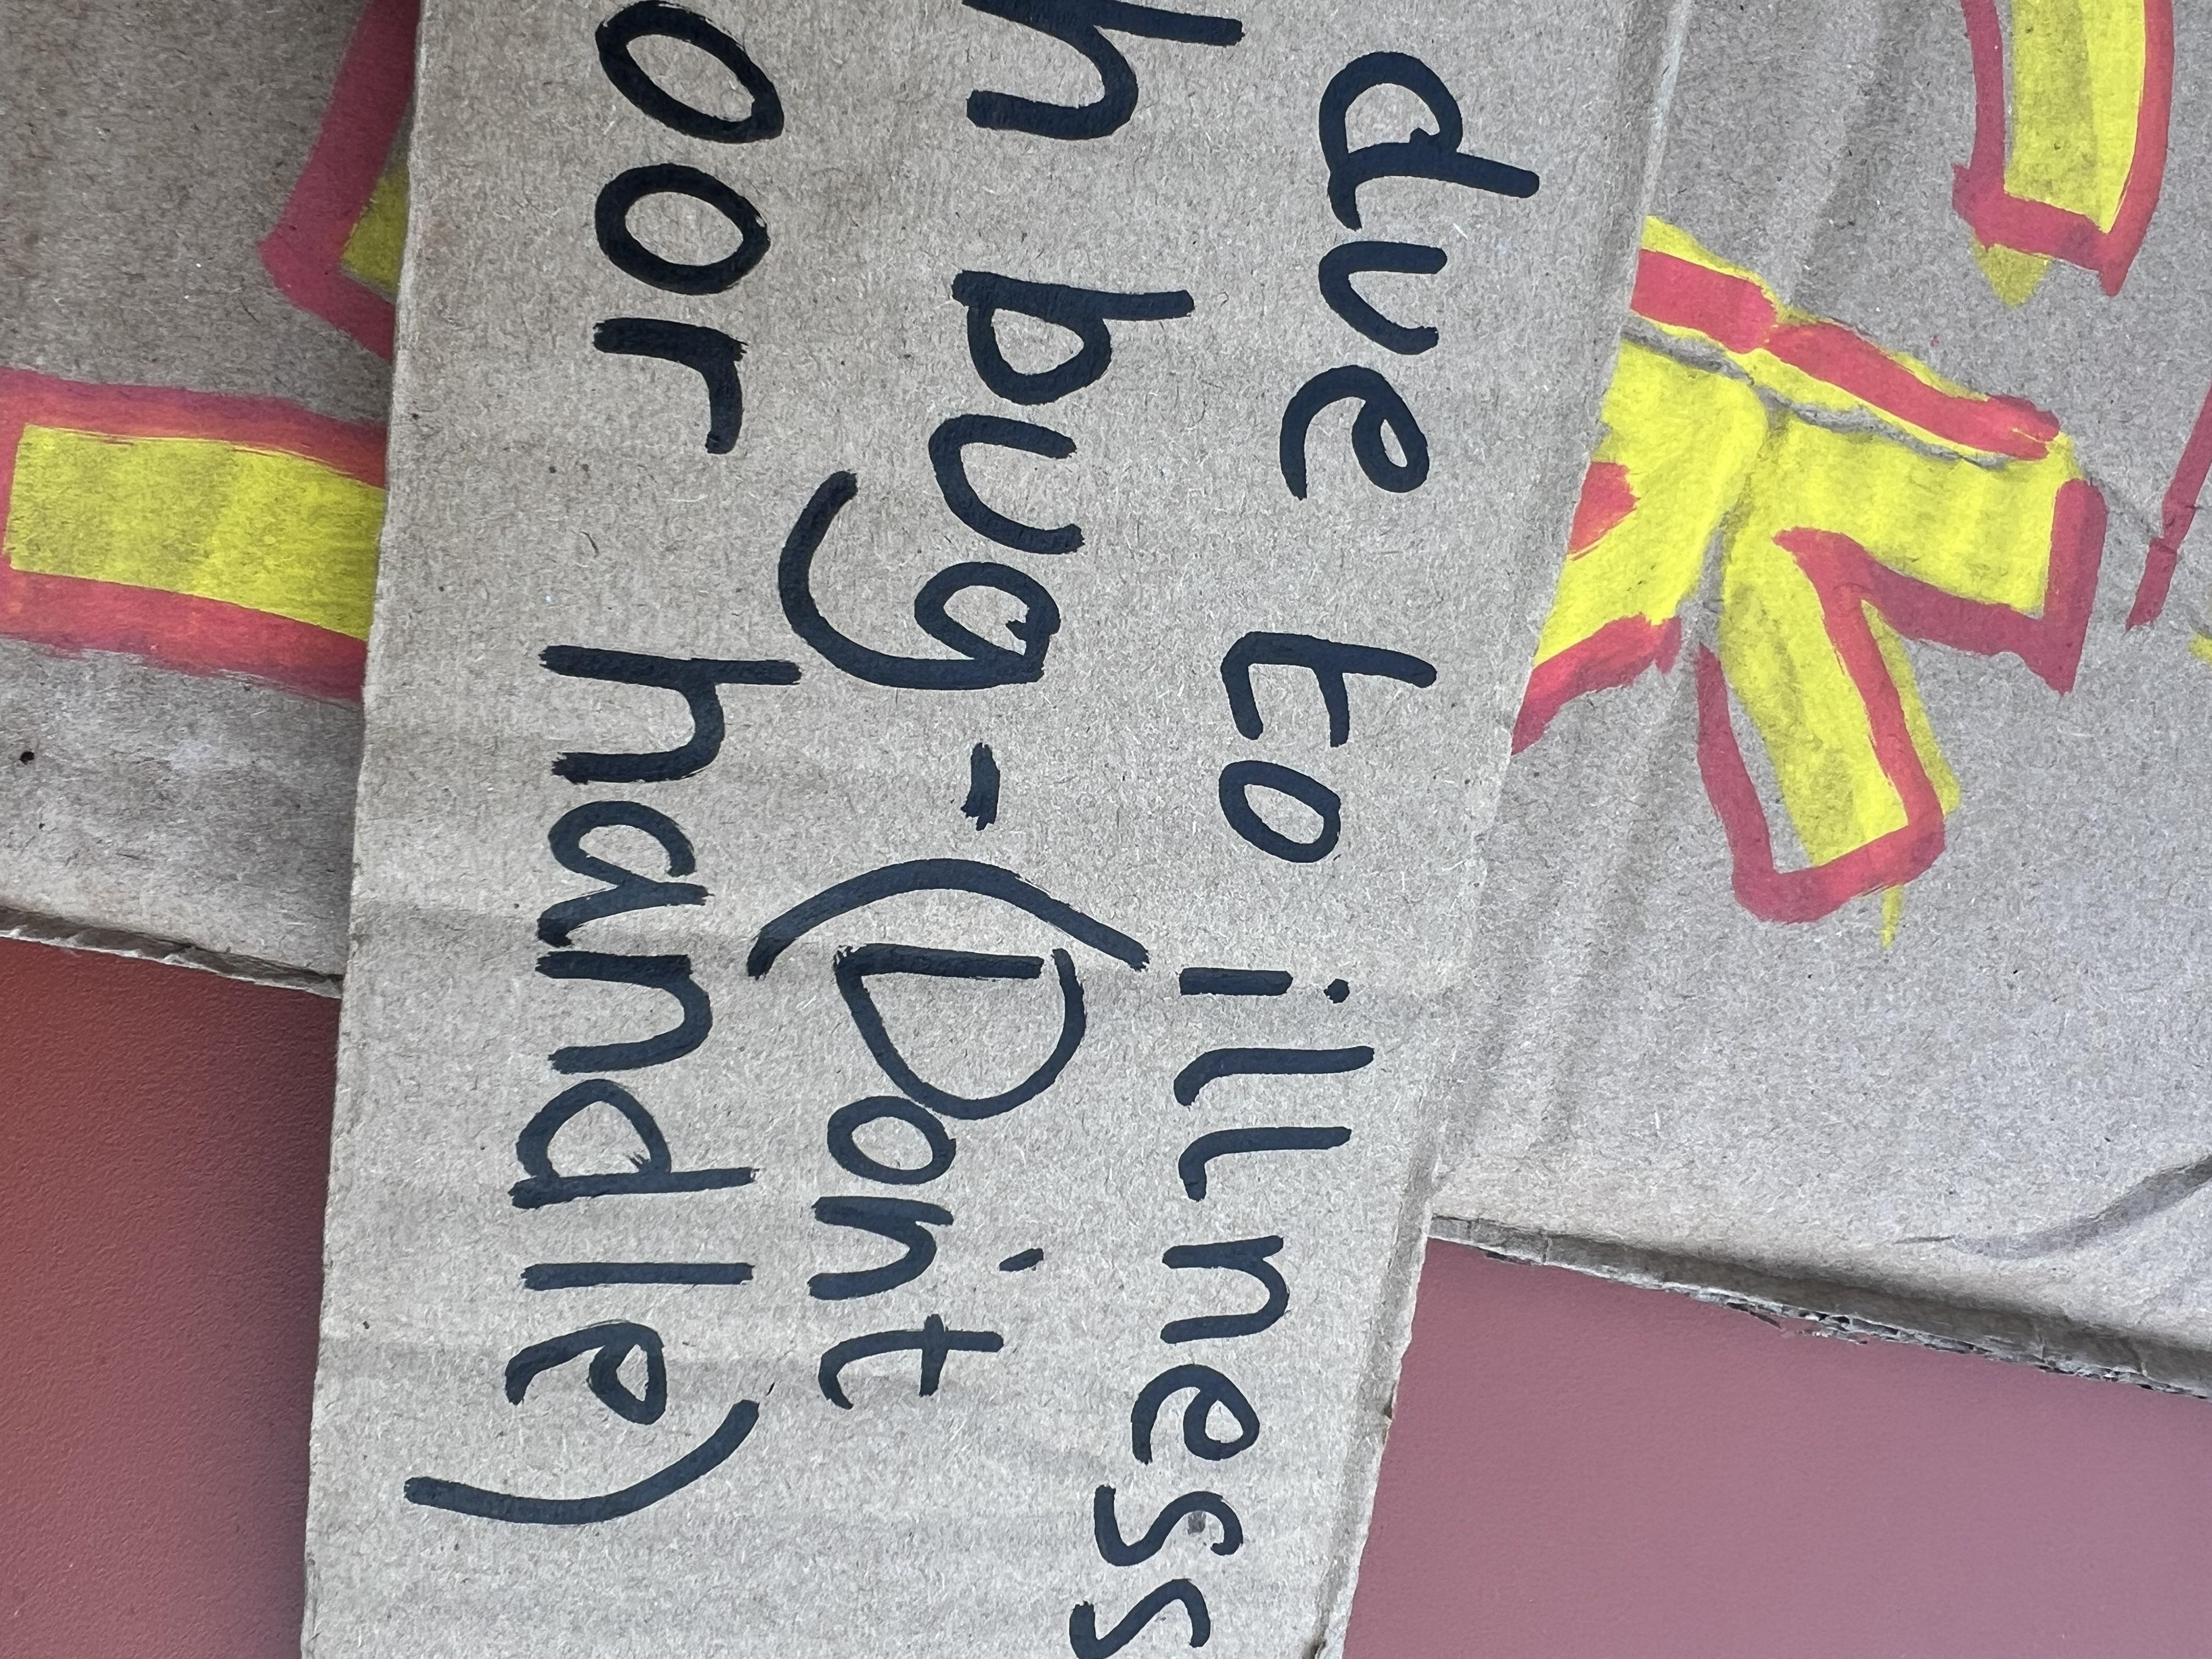 due to illness
h bug - (Don't
oor handle)